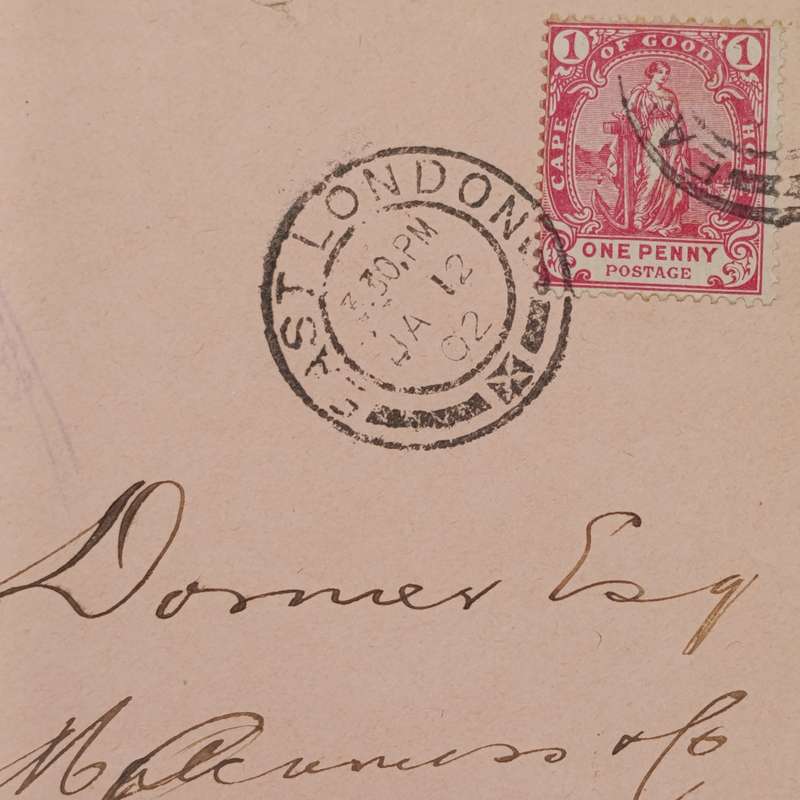 1 OF GOOD 1
CAPE
HOPE
ONE PENNY
POSTAGE
EAST LONDON
3.30.PM
JA 12
02
Dormer Esq
& Co